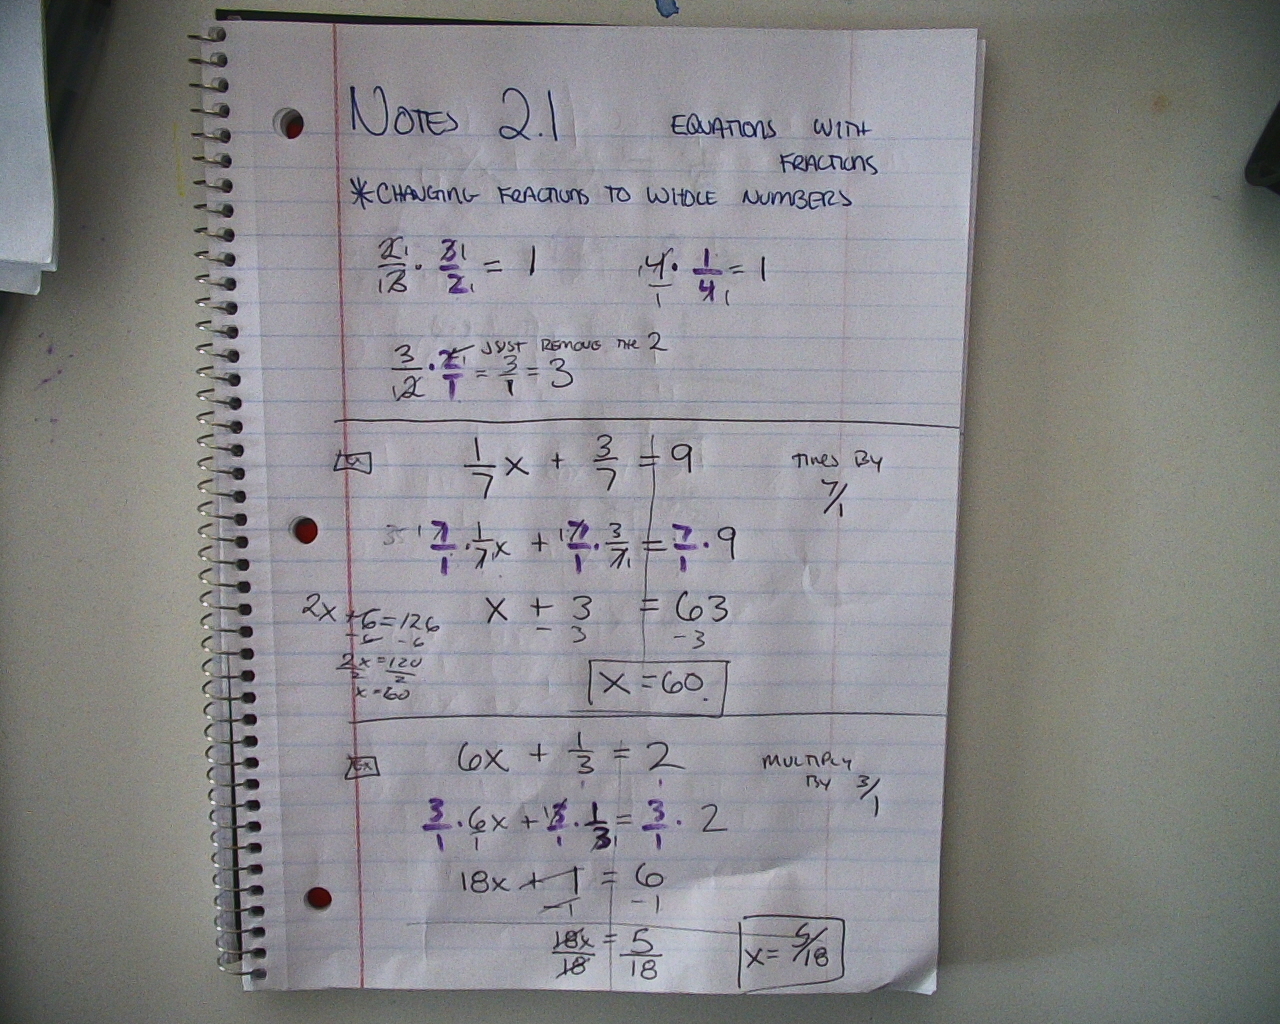 NOTES 2.1 EQUATIONS WITH
FRACTIONS
*CHANGING FRACTIONS TO WHOLE NUMBERS
2/3 · 3/2 = 1 4/1 · 1/4 = 1
JUST REMOVE THE 2
3/2 · 2/1 = 3/1 = 3
Ex 1/7 x + 3/7 = 9 TIMES BY
7/1
7/1 · 1/7 x + 7/1 · 3/7 = 7/1 · 9
x + 3 = 63
- 3 -3
x = 60
2x + 6 = 126
-6 -6
2x/2 = 120/2
x = 60
Ex 6x + 1/3 = 2 MULTIPLY
BY 3/1
3/1 · 6x/1 + 3/1 · 1/3 = 3/1 · 2
18x + 1 = 6
-1 -1
18x/18 = 5/18 x = 5/18